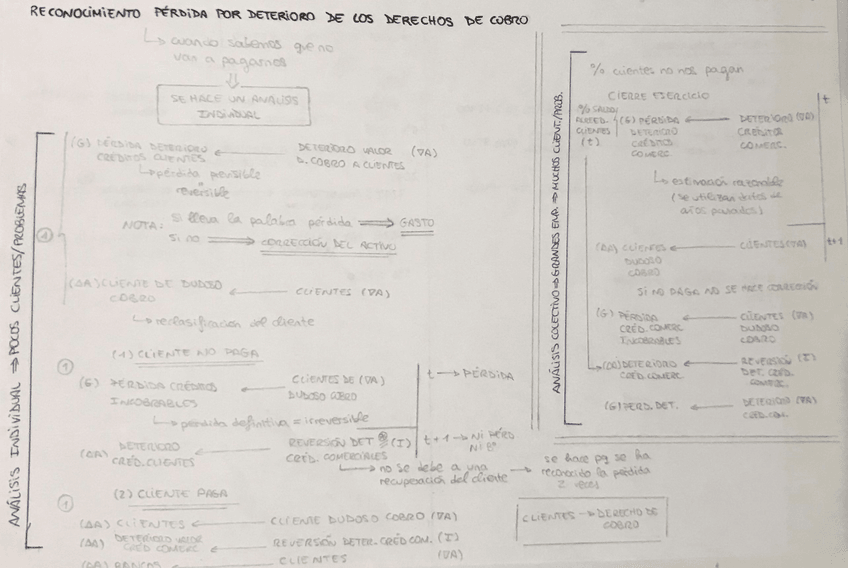 RECONOCIMIENTO PÉRDIDA POR DETERIORO DE LOS DERECHOS DE COBRO
↳ cuando sabemos que no
van a pagarnos
SE HACE UN ANÁLISIS
INDIVIDUAL
ANÁLISIS INDIVIDUAL ⇒ POCOS CLIENTES/PROBLEMAS
(G) PÉRDIDA DETERIORO ← DETERIORO VALOR (DA)
CRÉDITOS CLIENTES D. COBRO A CLIENTES
↳ pérdida
reversible
NOTA: si lleva la palabra pérdida ⇒ GASTO
si no ⇒ CORRECCIÓN DEL ACTIVO
①
(AA) CLIENTE DE DUDOSO ← CLIENTES (DA)
COBRO
↳ reclasificación del cliente
(1) CLIENTE NO PAGA
①
(G) PÉRDIDA CRÉDITOS ← CLIENTES DE (DA)
INCOBRABLES DUDOSO COBRO
t → PÉRDIDA
↳ pérdida definitiva = irreversible
(DA) DETERIORO ← REVERSIÓN DET (I)
CRÉD. CLIENTES CRÉD. COMERCIALES
t+1 → NI PÉRD
NI Bº
↳ no se debe a una
recuperación del cliente
→ se hace pq se ha
reconocido la pérdida
2 veces
(2) CLIENTE PAGA
①
(AA) CLIENTES ← CLIENTE DUDOSO COBRO (DA)
(AA) DETERIORO VALOR ← REVERSIÓN DETER. CRÉD COM. (I)
CRÉD COMERC
(AA) BANCOS ← CLIENTES (DA)
CLIENTES → DERECHO DE
COBRO
ANÁLISIS COLECTIVO ⇒ GRANDES EMP. ⇒ MUCHOS CLIENT./PROB.
% clientes no nos pagan
CIERRE EJERCICIO
t
% SALDO
CLIENTES
(t)
(G) PÉRDIDA ← DETERIORO (DA)
DETERIORO
CRÉDITOS CRÉDITOS
COMERC. COMERC.
↳ estimación razonable
(se utilizan datos de
años pasados)
t+1
(AA) CLIENTES ← CLIENTES (DA)
DUDOSO
COBRO
SI NO PAGA NO SE HACE CORRECCIÓN
(G) PÉRDIDA ← CLIENTES (DA)
CRÉD. COMERC DUDOSO
INCOBRABLES COBRO
(DA) DETERIORO ← REVERSIÓN (I)
CRÉD COMERC DET. CRÉD.
COMERC.
(G) PÉRD. DET. ← DETERIORO (DA)
CRÉD. COM.